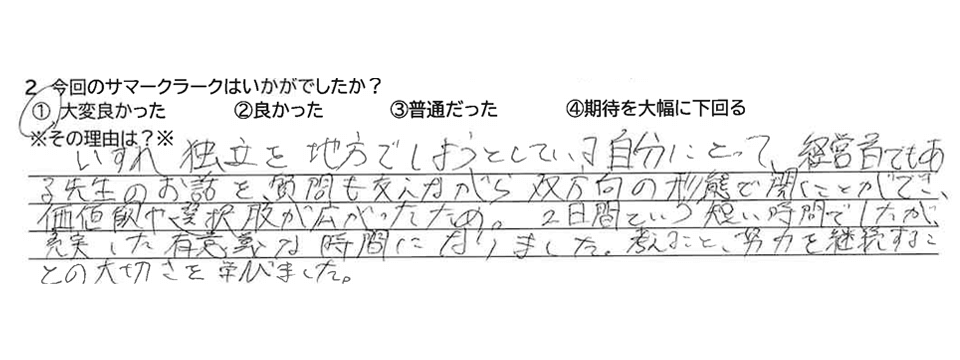 2 今回のサマークラークはいかがでしたか？
① 大変良かった ②良かった ③普通だった ④期待を大幅に下回る
※その理由は？※
いずれ独立を地方でしようとしている自分にとって、経営者でもあ
る先生のお話を、質問も交えながら双方向の形態で聞くことができ、
価値観や選択肢が広がったため。2日間という短い時間でしたが、
充実した有意義な時間になりました。考えること、努力を継続するこ
との大切さを学びました。